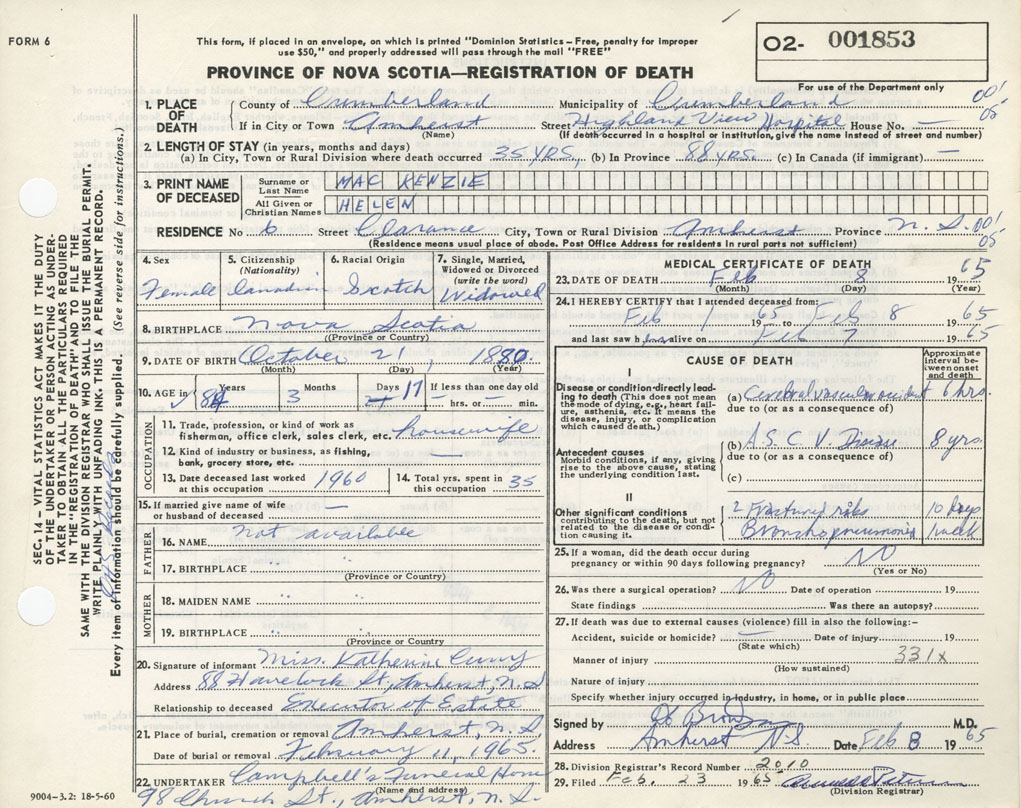 FORM 6
This form, if placed in an envelope, on which is printed "Dominion Statistics – Free, penalty for improper
use $50," and properly addressed will pass through the mail "FREE"
PROVINCE OF NOVA SCOTIA—REGISTRATION OF DEATH
O2- 001853
For use of the Department only
1. PLACE OF DEATH County of Cumberland Municipality of Cumberland 001
05
If in City or Town Amherst Street Highland View Hospital House No. —
(Name) (If death occurred in a hospital or institution, give the name instead of street and number)
2. LENGTH OF STAY (in years, months and days)
(a) In City, Town or Rural Division where death occurred 35 yrs. (b) In Province 88 yrs. (c) In Canada (if immigrant) —
3. PRINT NAME OF DECEASED
Surname or Last Name MAC KENZIE
All Given or Christian Names HELEN
RESIDENCE No 6 Street Clarance City, Town or Rural Division Amherst Province N. S. 001
05
(Residence means usual place of abode. Post Office Address for residents in rural parts not sufficient)
4. Sex
Female
5. Citizenship
(Nationality)
Canadian
6. Racial Origin
Scotch
7. Single, Married,
Widowed or Divorced
(write the word)
Widowed
8. BIRTHPLACE Nova Scotia
(Province or Country)
9. DATE OF BIRTH October 21 1880
(Month) (Day) (Year)
10. AGE in Years 84 Months 3 Days 17 If less than one day old
hrs. or min.
OCCUPATION
11. Trade, profession, or kind of work as
fisherman, office clerk, sales clerk, etc. housewife
12. Kind of industry or business, as fishing,
bank, grocery store, etc. —
13. Date deceased last worked
at this occupation 1960
14. Total yrs. spent in
this occupation 35
15. If married give name of wife
or husband of deceased —
FATHER
16. NAME not available
17. BIRTHPLACE " "
(Province or Country)
MOTHER
18. MAIDEN NAME " "
19. BIRTHPLACE " "
(Province or Country
20. Signature of informant Miss. Katherine Curry
Address 88 Havelock St, Amherst, N.S
Relationship to deceased Executor of Estate
21. Place of burial, cremation or removal Amherst, N. S,
Date of burial or removal February 11, 1965.
22. UNDERTAKER Campbell's Funeral Home
(Name and address)
98 Church St., Amherst, N. S.
MEDICAL CERTIFICATE OF DEATH
23. DATE OF DEATH Feb 8 1965
(Month) (Day) (Year)
24. I HEREBY CERTIFY that I attended deceased from:
Feb 1 1965 to Feb 8 1965
and last saw h alive on Feb 7 1965
CAUSE OF DEATH
Approximate
interval be-
tween onset
and death
I
Disease or condition directly lead-
ing to death (This does not mean
the mode of dying, e.g., heart fail-
ure, asthenia, etc. It means the
disease, injury, or complication
which caused death.)
(a) Cerebral vascular accident 6 hrs.
due to (or as a consequence of)
(b) A. S. C. V. Disease 8 yrs.
due to (or as a consequence of)
(c)
Antecedent causes
Morbid conditions, if any, giving
rise to the above cause, stating
the underlying condition last.
II
Other significant conditions
contributing to the death, but not
related to the disease or condi-
tion causing it.
2 Fractured ribs 10 days
Bronchopneumonia 1 week
25. If a woman, did the death occur during
pregnancy or within 90 days following pregnancy? NO
(Yes or No)
26. Was there a surgical operation? NO Date of operation 19
State findings Was there an autopsy?
27. If death was due to external causes (violence) fill in also the following:—
Accident, suicide or homicide? — Date of injury 19
(State which)
Manner of injury 331x
(How sustained)
Nature of injury
Specify whether injury occurred in industry, in home, or in public place
Signed by M.D.
Address Amherst N.S. Date Feb 8 1965
28. Division Registrar's Record Number 2010
29. Filed Feb. 23 1965
(Division Registrar)
SEC. 14 – VITAL STATISTICS ACT MAKES IT THE DUTY
OF THE UNDERTAKER OR PERSON ACTING AS UNDER-
TAKER TO OBTAIN ALL THE PARTICULARS REQUIRED
IN THE "REGISTRATION OF DEATH" AND TO FILE THE
SAME WITH THE DIVISION REGISTRAR WHO SHALL ISSUE THE BURIAL PERMIT.
WRITE PLAINLY WITH UNFADING INK - THIS IS A PERMANENT RECORD.
Every item of information should be carefully supplied. (See reverse side for instructions.)
9004-3.2: 18-5-60